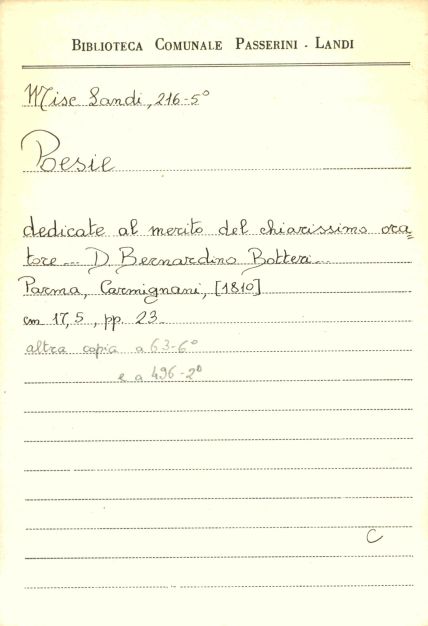 BIBLIOTECA COMUNALE PASSERINI - LANDI
Misc Landi, 216-5°
Poesie
dedicate al merito del chiarissimo ora=
tore... D. Bernardino Botteri...
Parma, Carmignani, [1810]
cm 17,5, pp. 23.
altra copia a 63-6°
e a 496-2°
C